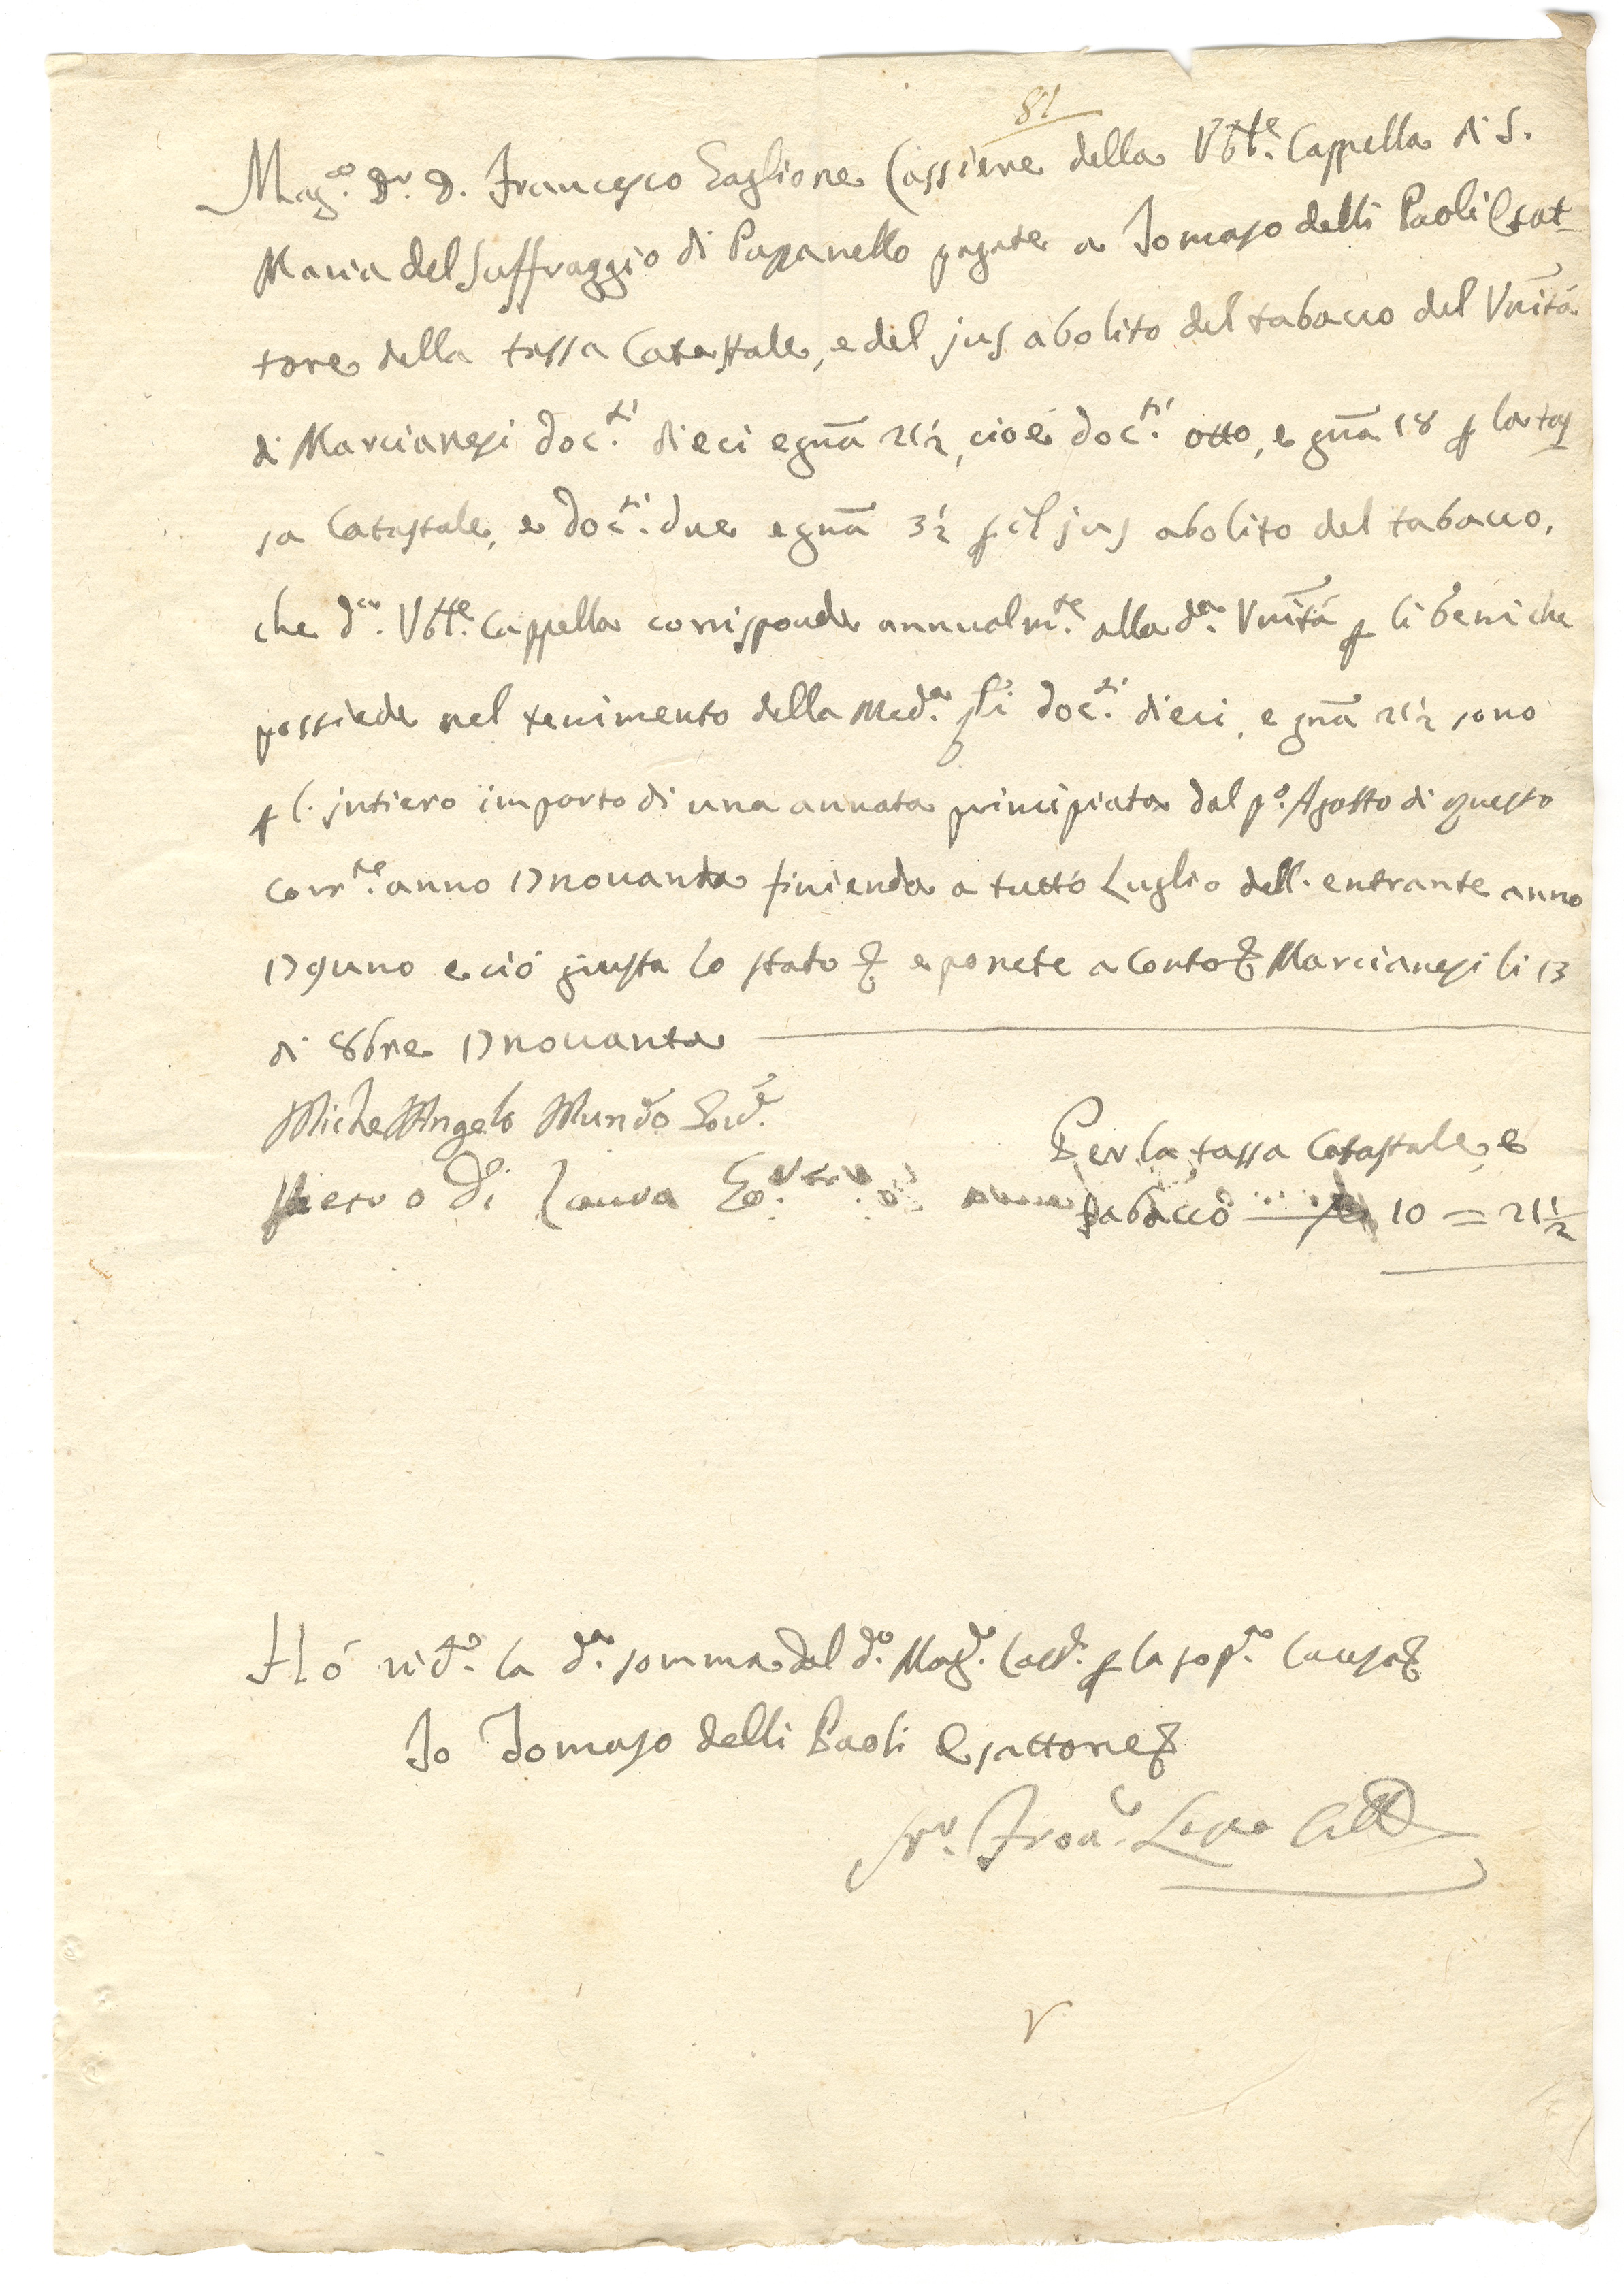 81
Mag.co Dr. D. Francesco Zaglione Cassiere della Vble. Cappella di S.
Maria del Suffraggio di Puzzanello pagate a Tomaso delli Paoli Esat=
tore della tassa Catastale, e del jus abolito del tabacco del Vnità
di Marcianesi doc.ti dieci e gna 21½, cioè doc.ti otto, e gna 18 p la tas=
sa Catastale, e doc.ti due e gna 3½ p il jus abolito del tabacco,
che d.a Vble. Cappella corrisponde annualm.te alla d.a Vnità p li beni che
possiede nel tenimento della Med.a li doc.ti dieci, e gna 21½ sono
p l'intiero importo di una annata principiata dal p.o Agosto di questo
corr.te anno 17novanta finienda a tutto Luglio dell'entrante anno
179uno e ciò giusta lo stato & e ponete a conto & Marcianesi li 13
di 8bre 17novanta
MichelAngelo Mundo
di Lauro
Per la tassa Catastale, e
tabacco 10 = 21½
Hò ric.to la d.a somma dal d.o Mag.co Cass.e p la sop.a causa &
Io Tomaso delli Paoli Esattore &
Fran.co